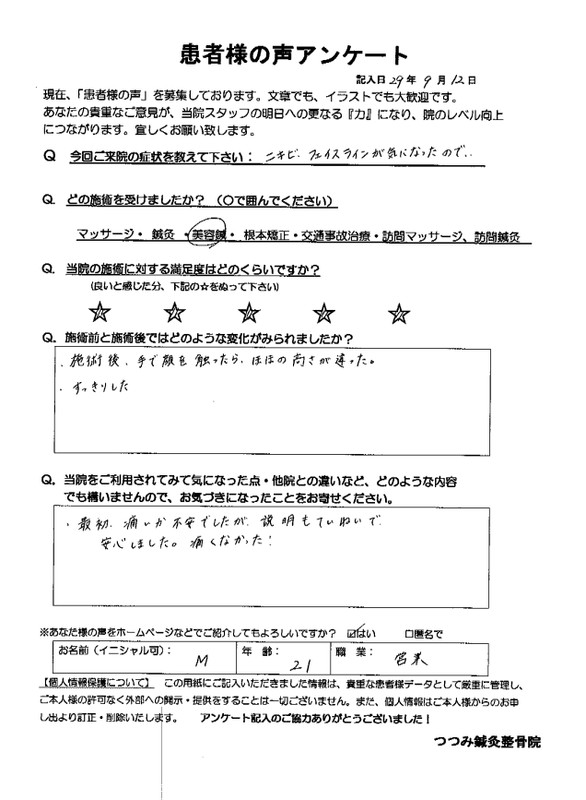 患者様の声アンケート
記入日 29年 9月 12日
現在、「患者様の声」を募集しております。文章でも、イラストでも大歓迎です。
あなたの貴重なご意見が、当院スタッフの明日への更なる『力』になり、院のレベル向上
につながります。宜しくお願い致します。
Q 今回ご来院の症状を教えて下さい： ニキビ、フェイスラインが気になったので、.
Q. どの施術を受けましたか？（○で囲んでください）
マッサージ・ 鍼灸 ・美容鍼・ 根本矯正・交通事故治療・訪問マッサージ、訪問鍼灸
Q. 当院の施術に対する満足度はどのくらいですか？
（良いと感じた分、下記の☆をぬって下さい）
☆ ☆ ☆ ☆ ☆
Q. 施術前と施術後ではどのような変化がみられましたか？
・施術後、手で顔を触ったら、ほほの高さが違った。
・すっきりした
Q. 当院をご利用されてみて気になった点・他院との違いなど、どのような内容
でも構いませんので、お気づきになったことをお寄せください。
・最初、痛いか不安でしたが、説明もていねいで、
安心しました。痛くなかった！
※あなた様の声をホームページなどでご紹介してもよろしいですか？ ☑はい □匿名で
お名前（イニシャル可）： M 年 齢： 21 職 業： 営業
【個人情報保護について】 この用紙にご記入いただきました情報は、貴重な患者様データとして厳重に管理し、
ご本人様の許可なく外部への開示・提供をすることは一切ございません。また、個人情報はご本人様からのお申
し出より訂正・削除いたします。 アンケート記入のご協力ありがとうございました！
つつみ鍼灸整骨院